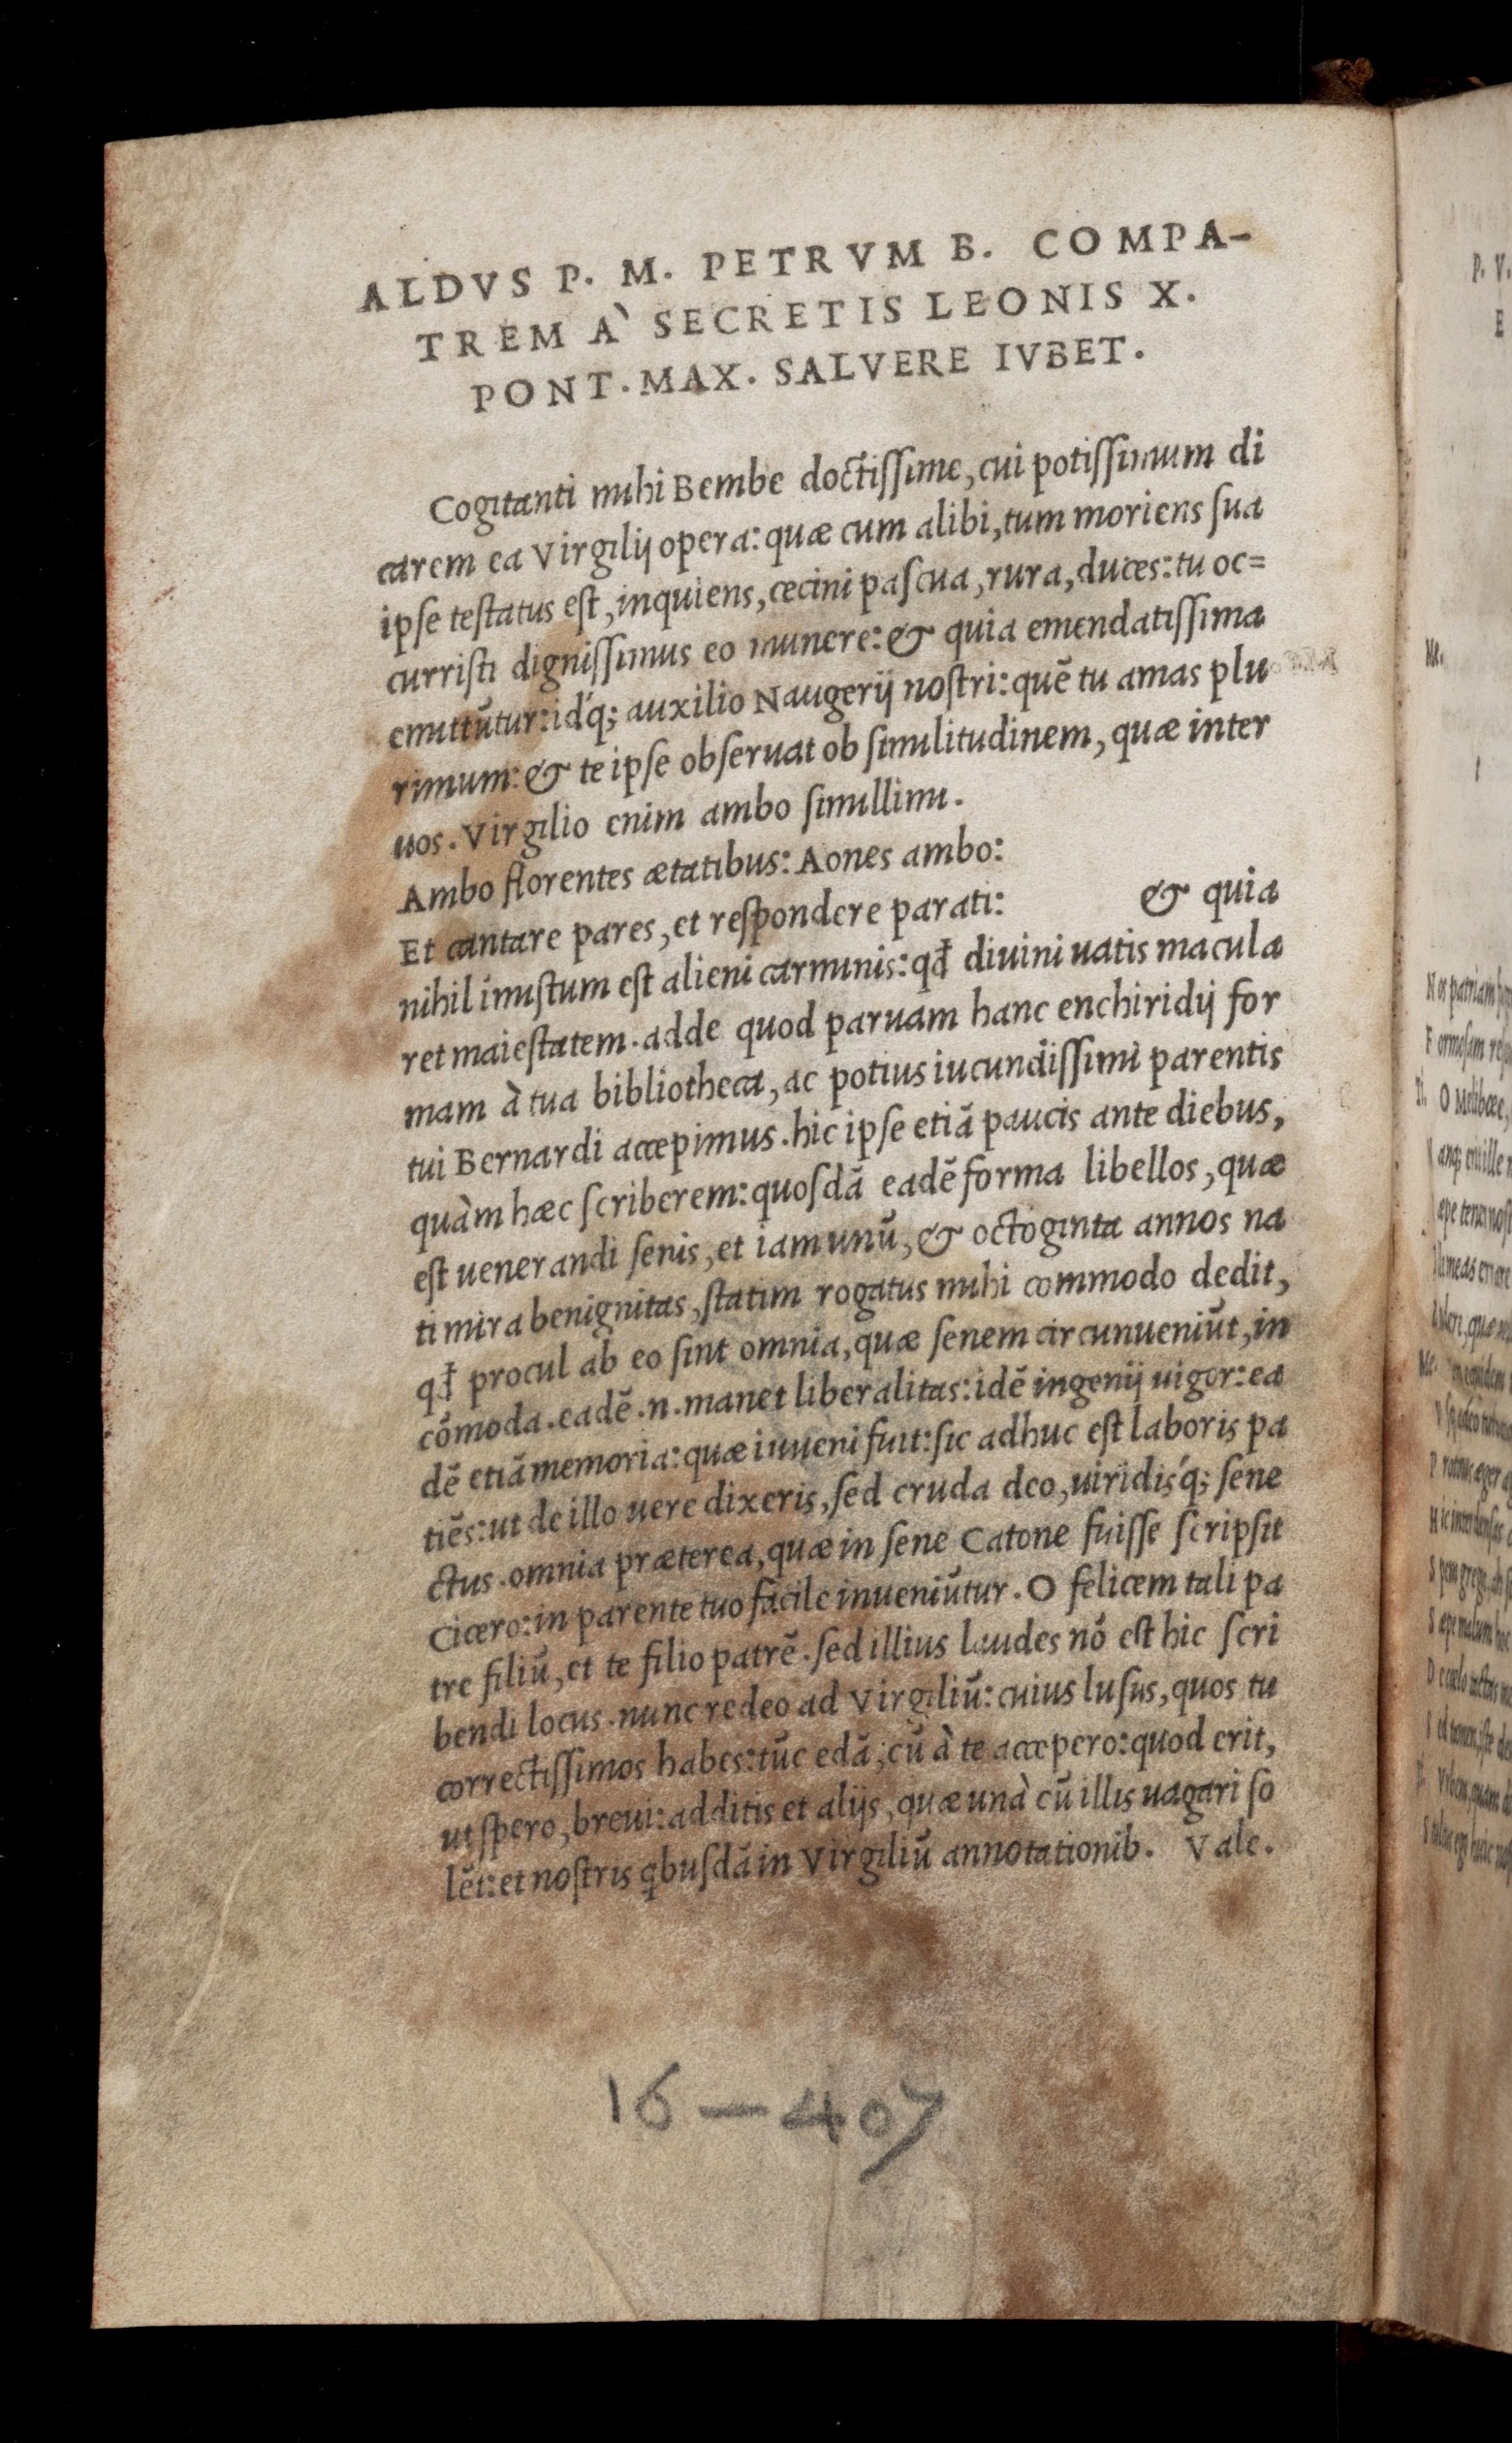 ALDVS P. M. PETRVM B. COMPA-
TREM À SECRETIS LEONIS X.
PONT. MAX. SALVERE IVBET.
Cogitanti mihi Bembe doctiſſime, cui potiſſimum di
carem ea Virgilij opera: quæ cum alibi, tum moriens ſua
ipſe teſtatus eſt, inquiens, cecini paſcua, rura, duces: tu oc=
curriſti digniſſimus eo munere: & quia emendatiſſima
emittũtur: id´q; auxilio Naugerij noſtri: quẽ tu amas plu
rimum: & te ipſe obſeruat ob ſimilitudinem, quæ inter
uos. Virgilio enim ambo ſimillimi.
Ambo florentes ætatibus: Aones ambo:
Et cantare pares, et reſpondere parati: & quia
nihil inuſtum eſt alieni carminis: qđ diuini uatis macula
ret maieſtatem. adde quod paruam hanc enchiridij for
mam à tua bibliotheca, ac potius iucundiſſimi parentis
tui Bernardi accepimus. hic ipſe etiã paucis ante diebus,
quàm hæc ſcriberem: quoſdã eadẽ forma libellos, quæ
eſt uenerandi ſenis, et iam unũ, & octoginta annos na
ti mira benignitas, ſtatim rogatus mihi commodo dedit,
qđ procul ab eo ſint omnia, quæ ſenem circunueniũt, in
cõmoda. eadẽ .n. manet liberalitas: idẽ ingenij uigor: ea
dẽ etiã memoria: quæ iuueni fuit: ſic adhuc eſt laboris pa
tiẽs: ut de illo uere dixeris, ſed cruda deo, uiridiſ´q; ſene
ctus. omnia præterea, quæ in ſene Catone fuiſſe ſcripſit
Cicero: in parente tuo facile inueniũtur. O felicem tali pa
tre filiũ, et te filio patrẽ. ſed illius laudes nõ eſt hic ſcri
bendi locus. nunc redeo ad Virgiliũ: cuius luſus, quos tu
correctiſſimos habes: tũc edã, cũ à te accepero: quod erit,
ut ſpero, breui: additis et alijs, quæ unà cũ illis uagari ſo
lẽt: et noſtris qbuſdã in Virgiliũ annotationib. Vale.
16 — 407